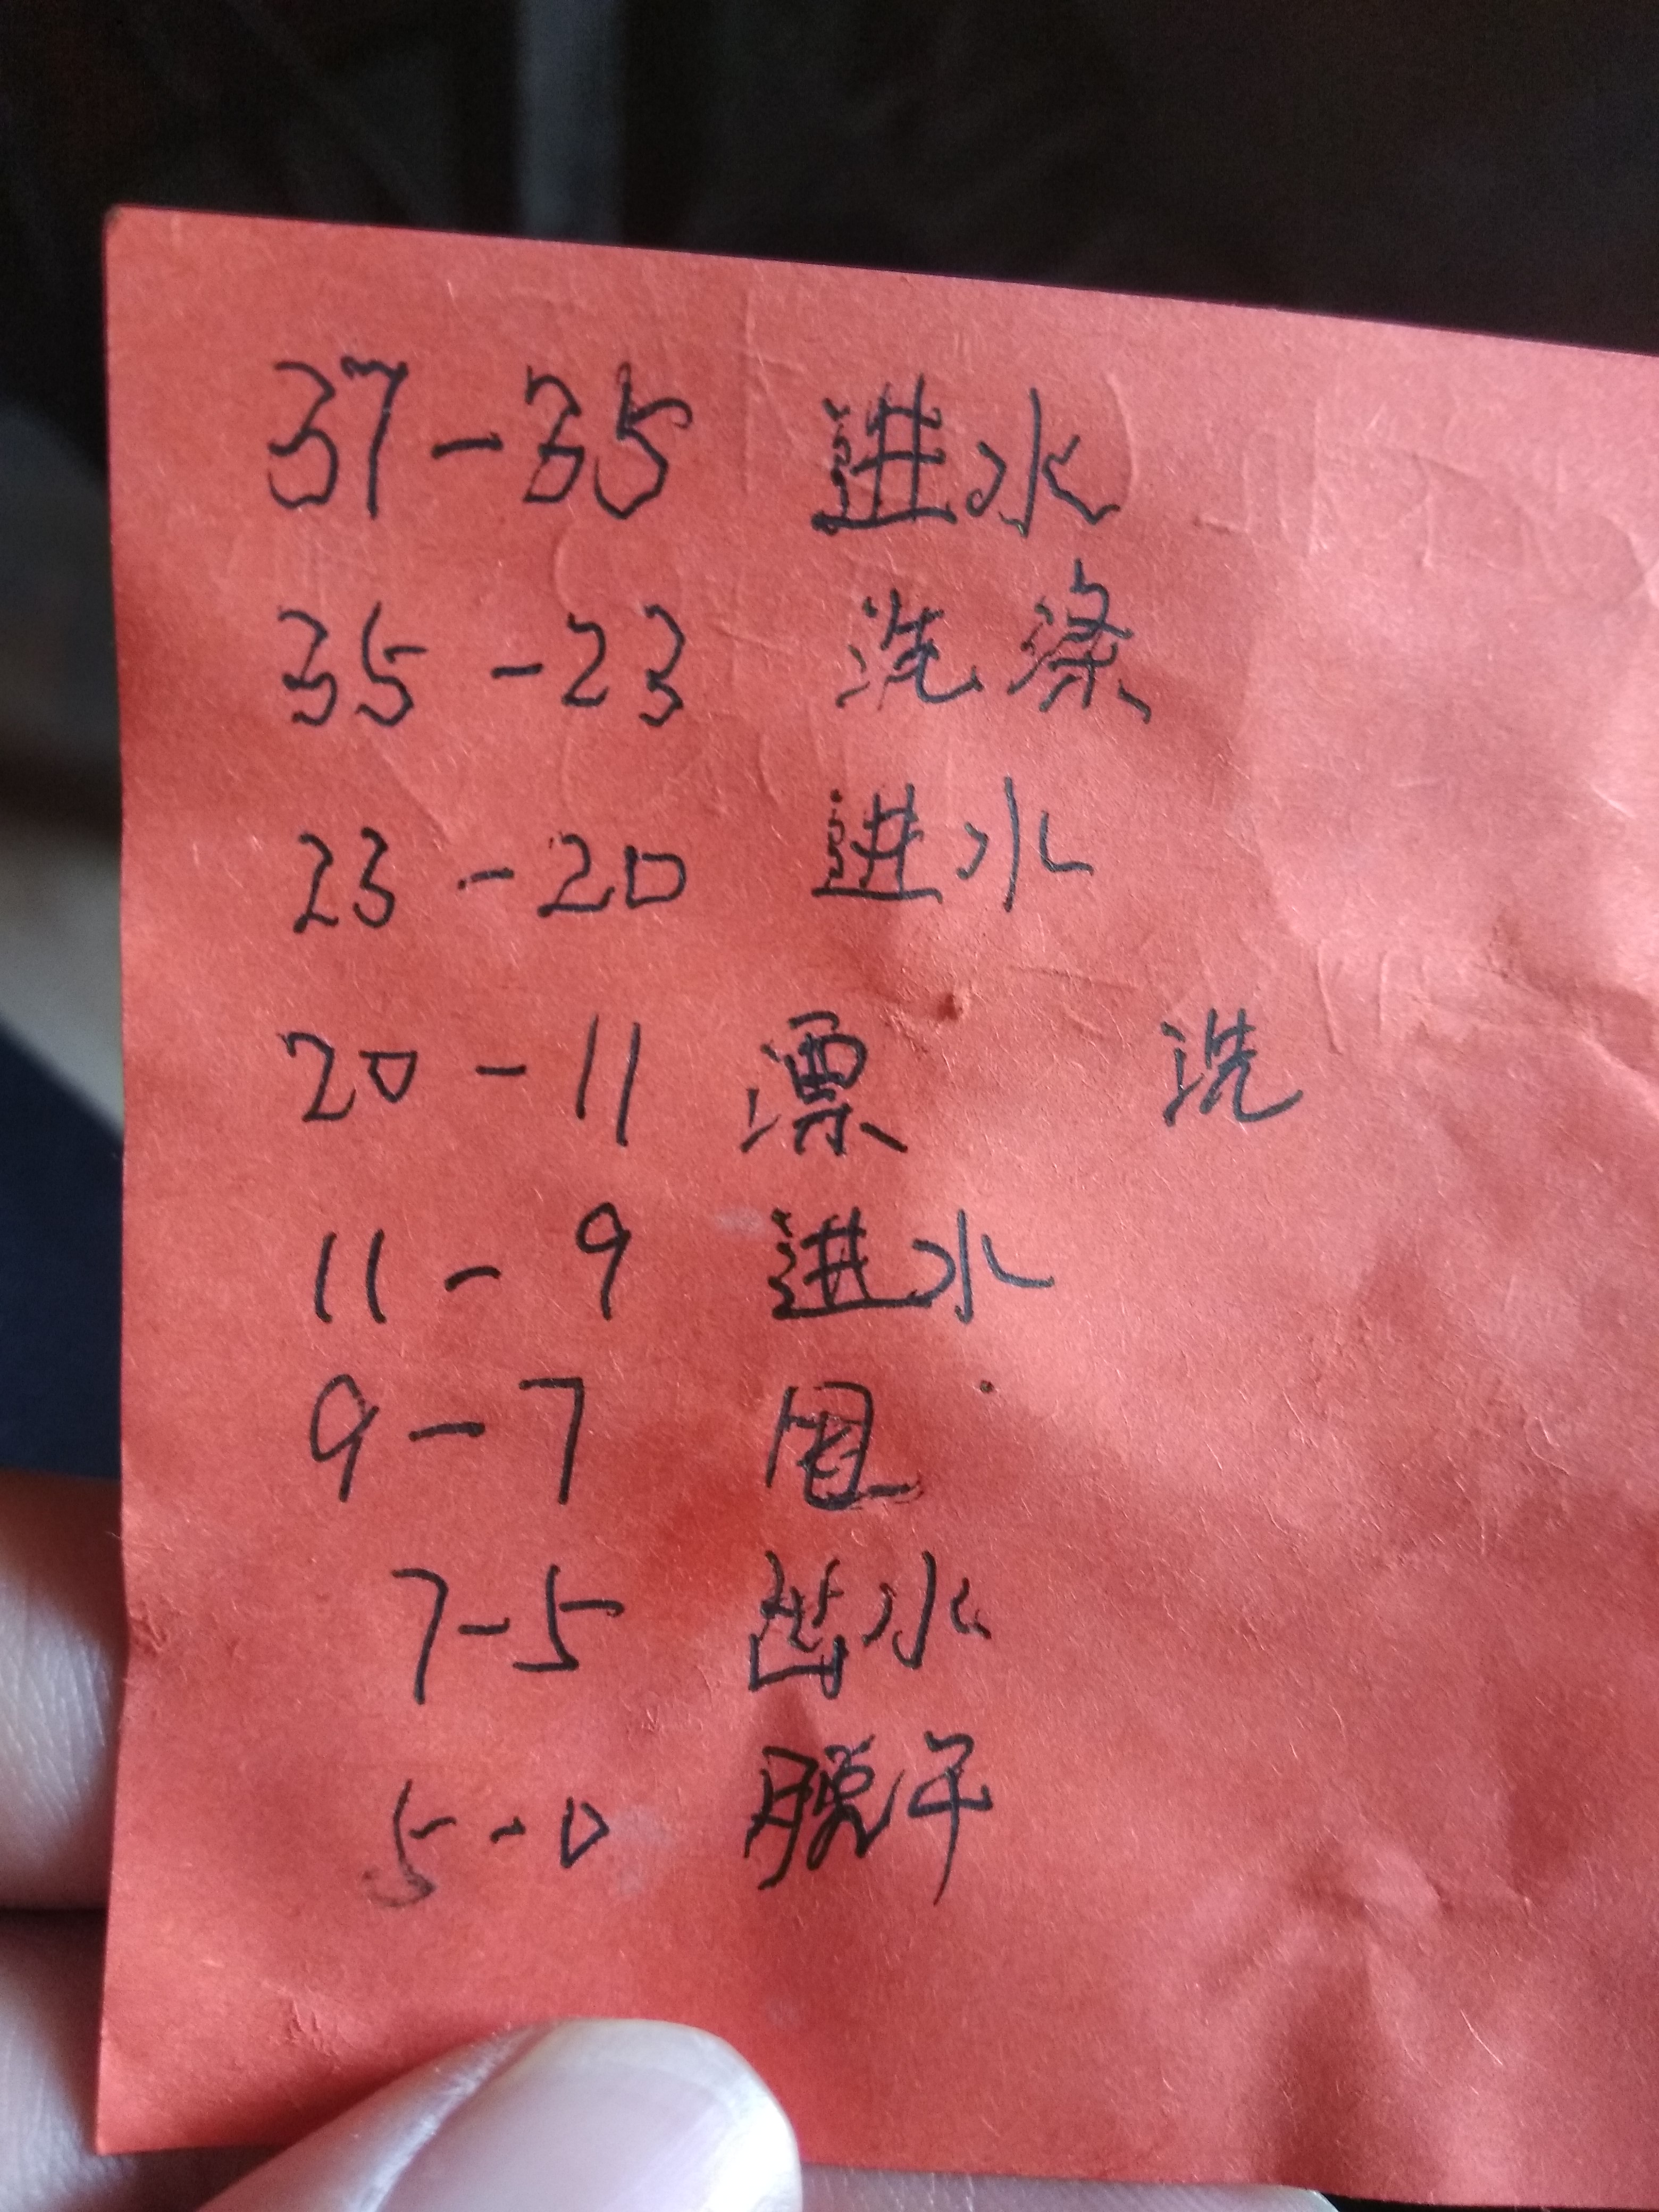 37-35 进水
35-23 洗涤
23-20 进水
20-11 漂 洗
11-9 进水
9-7
7-5 出水
5-0 脱干